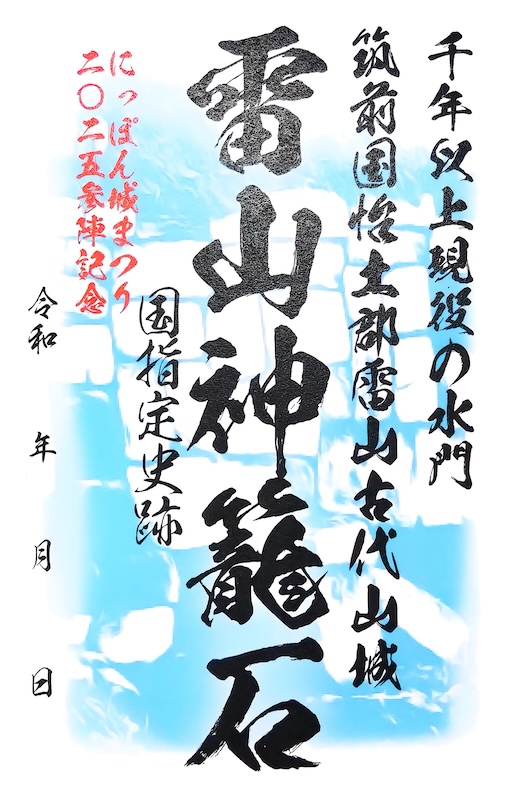 千年以上現役の水門
筑前国怡土郡雷山古代山城
雷山神籠石
国指定史跡
にっぽん城まつり
二〇二五参陣記念
令和 年 月 日